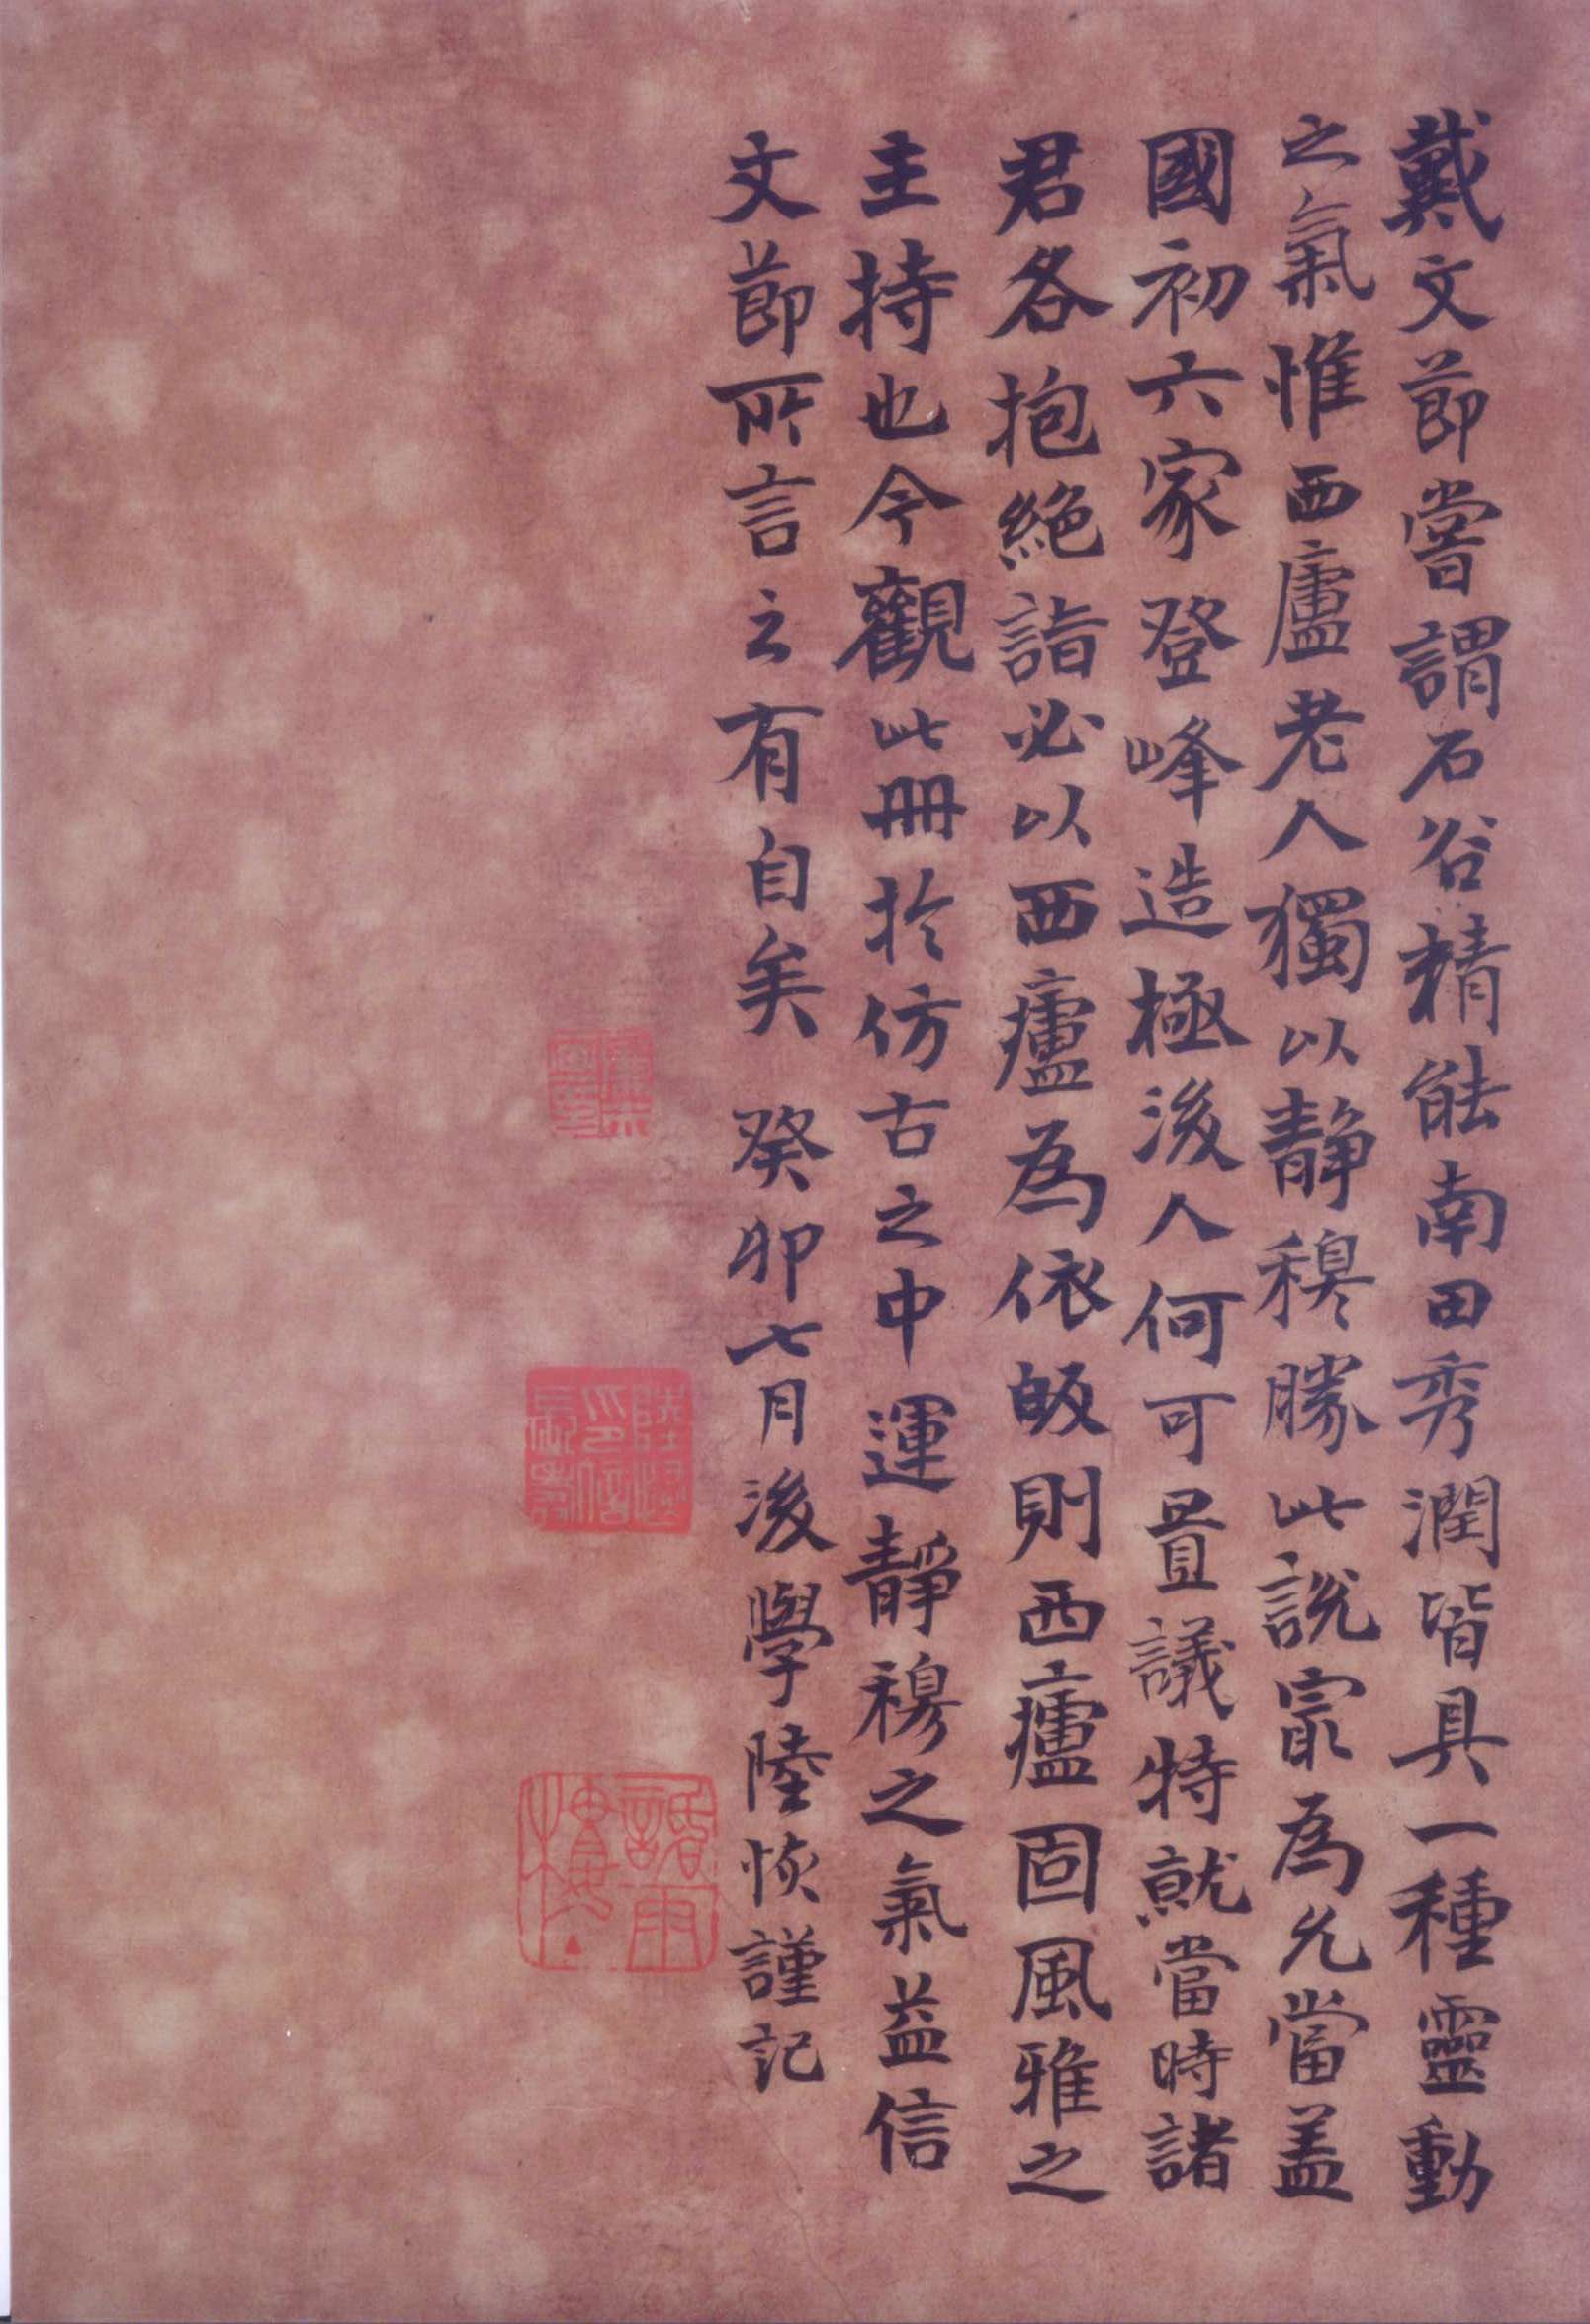 戴文節嘗謂石谷精能南田秀潤皆具一種靈動
之氣惟西廬老人獨以靜穆勝此說㝡為允當蓋
國初六家登峰造極後人何可置議特就當時諸
君各抱絕詣必以西廬為依皈則西廬固風雅之
主持也今觀此冊於仿古之中運靜穆之氣益信
文節所言之有自矣 癸卯七月後學陸恢謹記